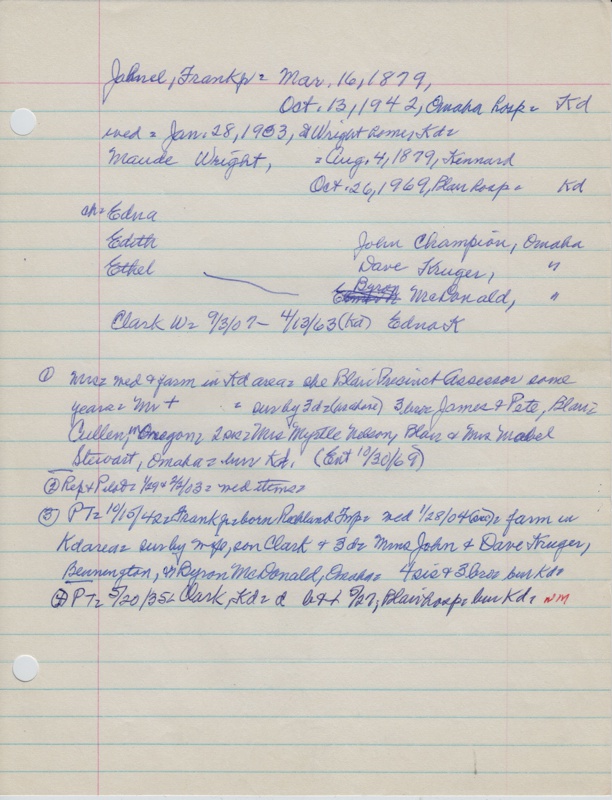 Jahnel, Frank p = Mar. 16, 1879,
Oct. 13, 1942, Omaha hosp = Kd
wed = Jan. 28, 1903, at Wright home, Kd =
Maude Wright, = Aug. 4, 1879, Kennard
Oct. 26, 1969, Blair hosp = Kd
ch = Edna
Edith John Champion, Omaha
Ethel Dave Kruger, "
Byron McDonald, "
Clark W = 9/3/07 - 4/13/63 (Kd) Edna K
① Mrs = wed & farm in Kd area = she Blair Precinct Assessor some
years = Mr + = sur by 3 d = 3 bros James & Pete, Blair =
Cullen, in Oregon = 2 sis = Mrs Myrtle Nelson, Blair & Mrs Mabel
Stewart, Omaha = bur Kd. (Ent 10/30/69)
② Rep & Pilot = 1/29 & 2/4/03 = wed items =
③ PT = 10/15/42 = Frank p = born Richland Twp = wed 1/28/04 (sic) = farm in
Kd area = sur by wife, son Clark & 3 d = Mmes John & Dave Kruger,
Bennington, & Byron McDonald, Omaha = 4 sis & 3 bros bur Kd =
④ PT = 5/20/35 = Clark, Kd = d b & d 5/27, Blair hosp = bur Kd = NM